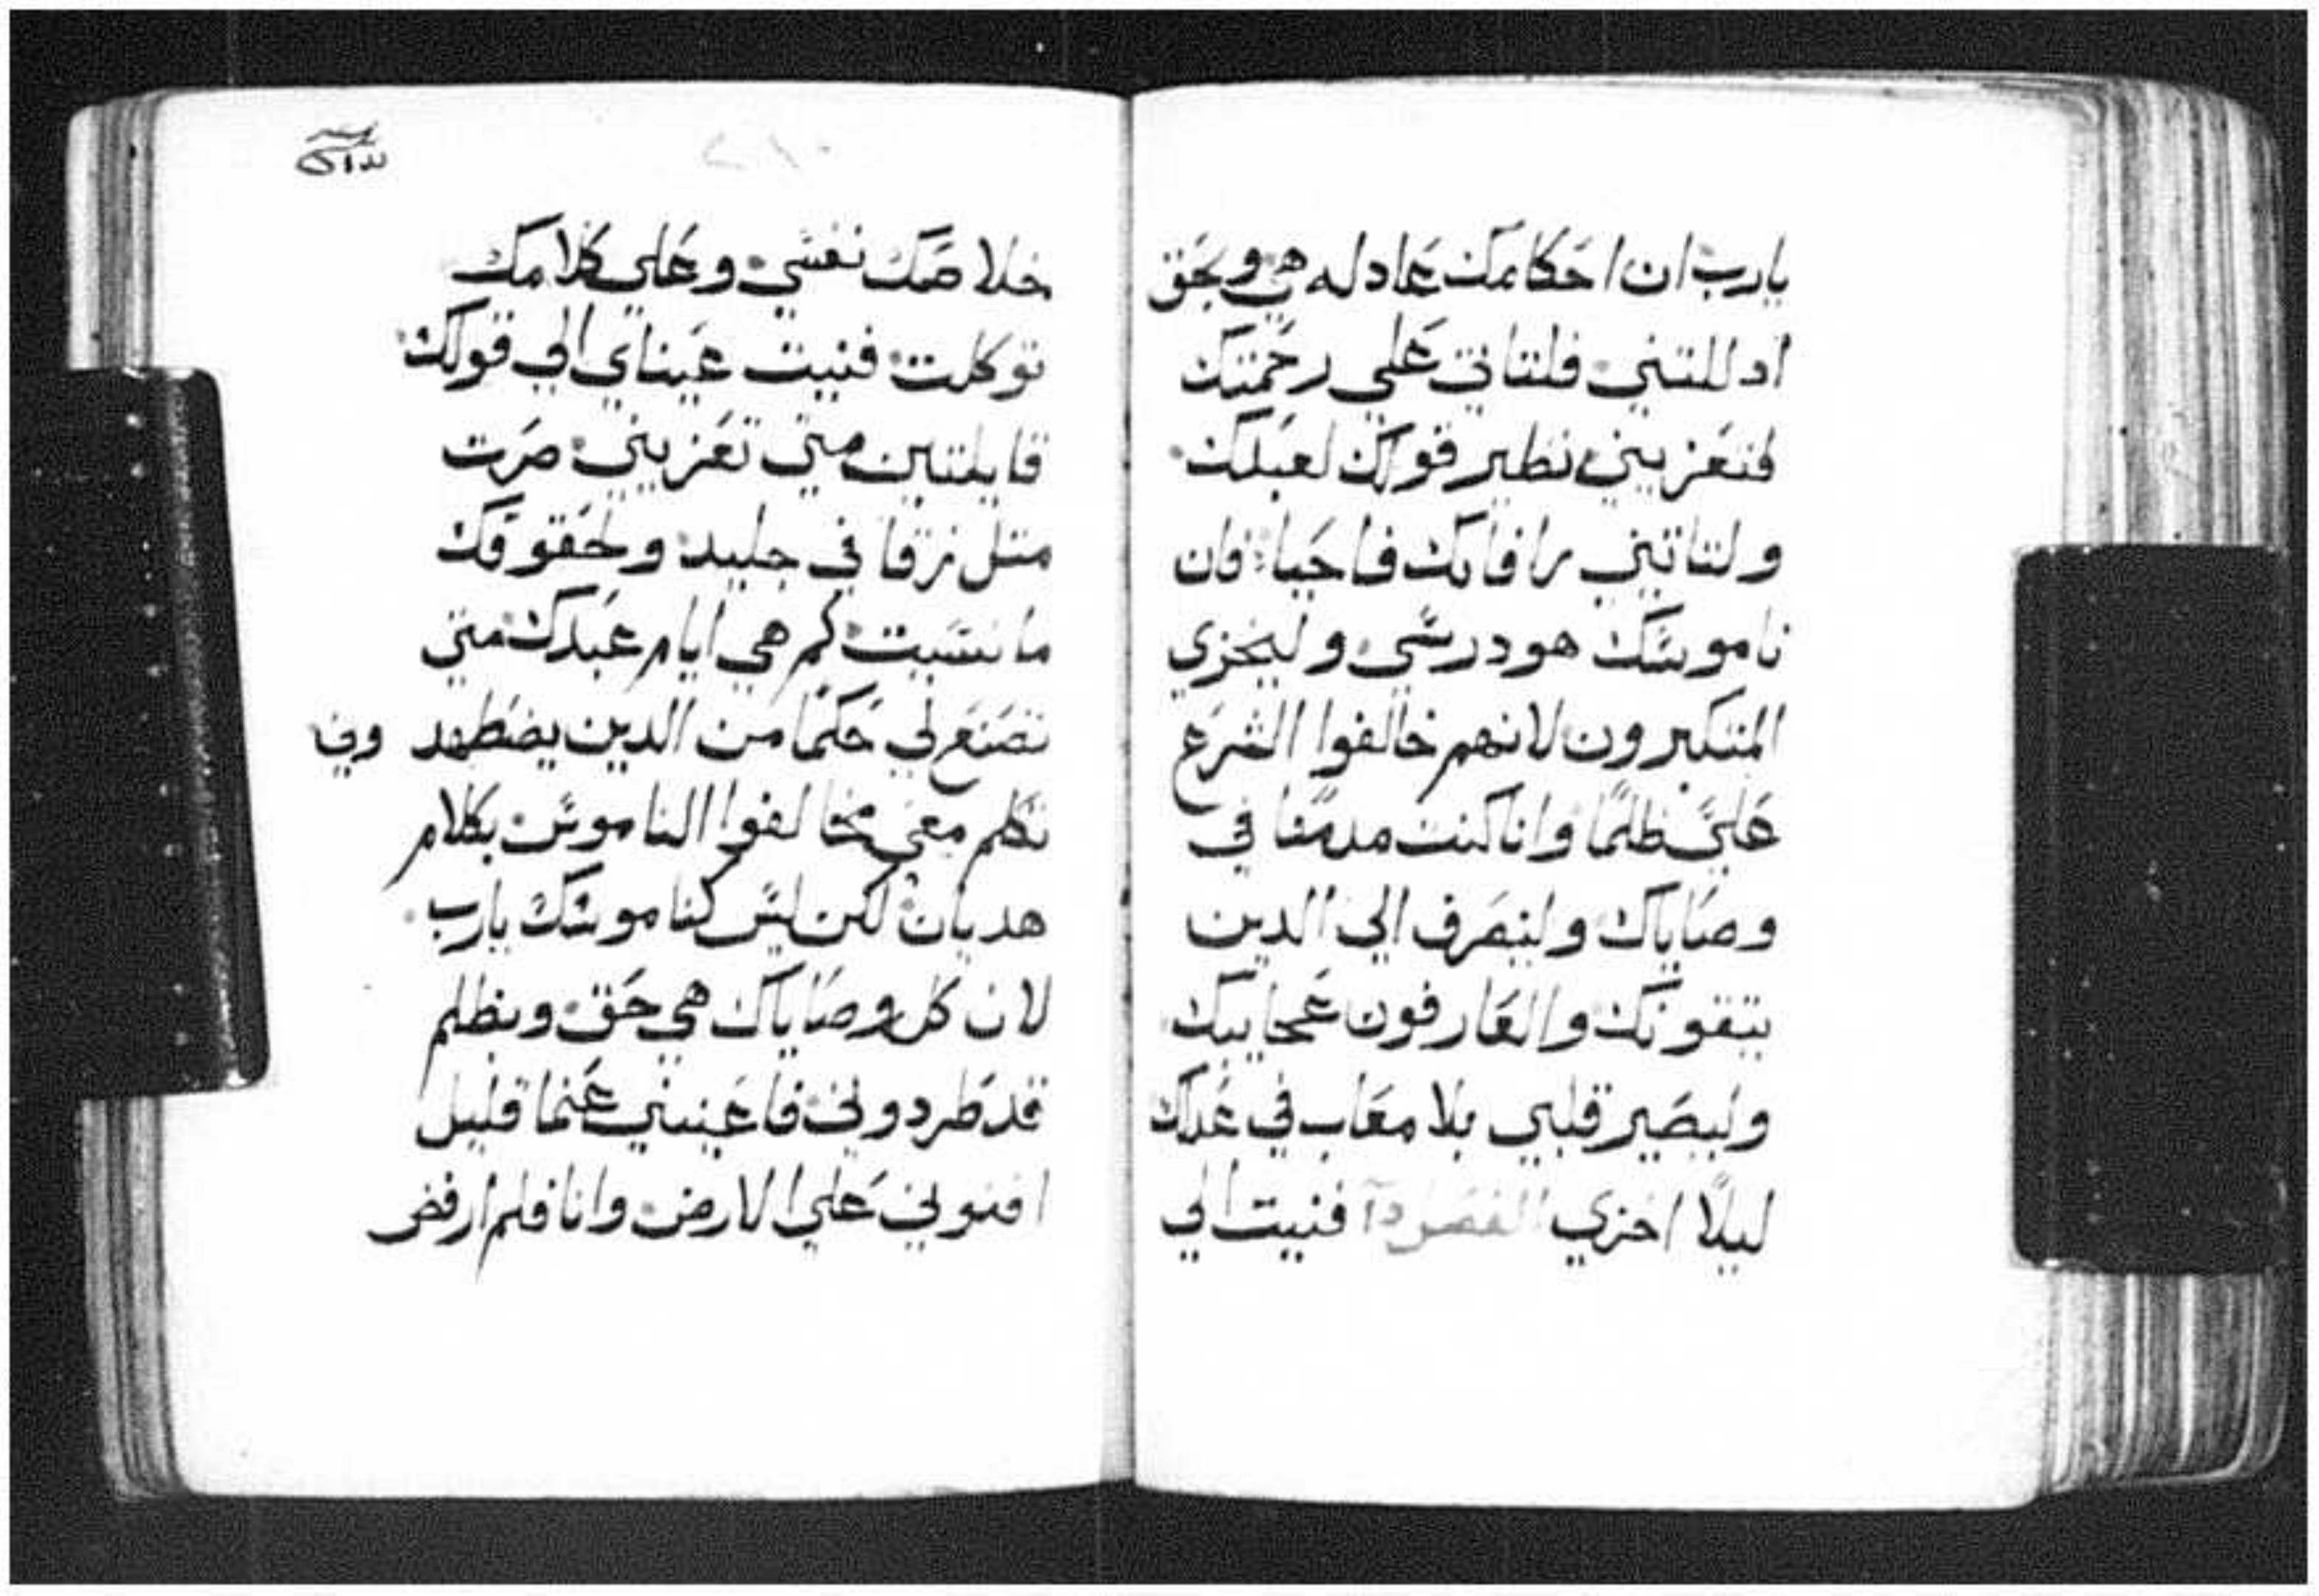 يارب ان احكامك عادله هي وبحق
ادللتني فلتاتي علي رحمتك
لتعزيني نظير قولك لعبدك
ولتاتيني رافاتك فاحيا فان
ناموسك هو درسي وليخزي
المتكبرون لانهم خالفوا الشرع
عليَّ ظلمًا وانا كنت مدمنا في
وصاياك ولينصرف الي الدين
يتقونك والعارفون عجايبك
وليصير قلبي بلا معاب في عدلك
ليلًا اخزي الفصل فنيت الي
٢١٠
خلاصك نفسي وعلي كلامك
توكلت فنيت عيناي الي قولك
قايلتين متي تعزيني صرت
متل زقا في جليد ولحقوقك
ما نسيت كم هي ايام عبدك متي
تصنع لي حكمًا من الدين يضطهدوني
تكلم معي مخالفوا الناموس بكلام
هديان لكن ليس كناموسك يارب
لان كل وصاياك هي حق وبظلم
قد طردوني فاعينني عنما قليل
افنوني علي الارض وانا فلم ارفض